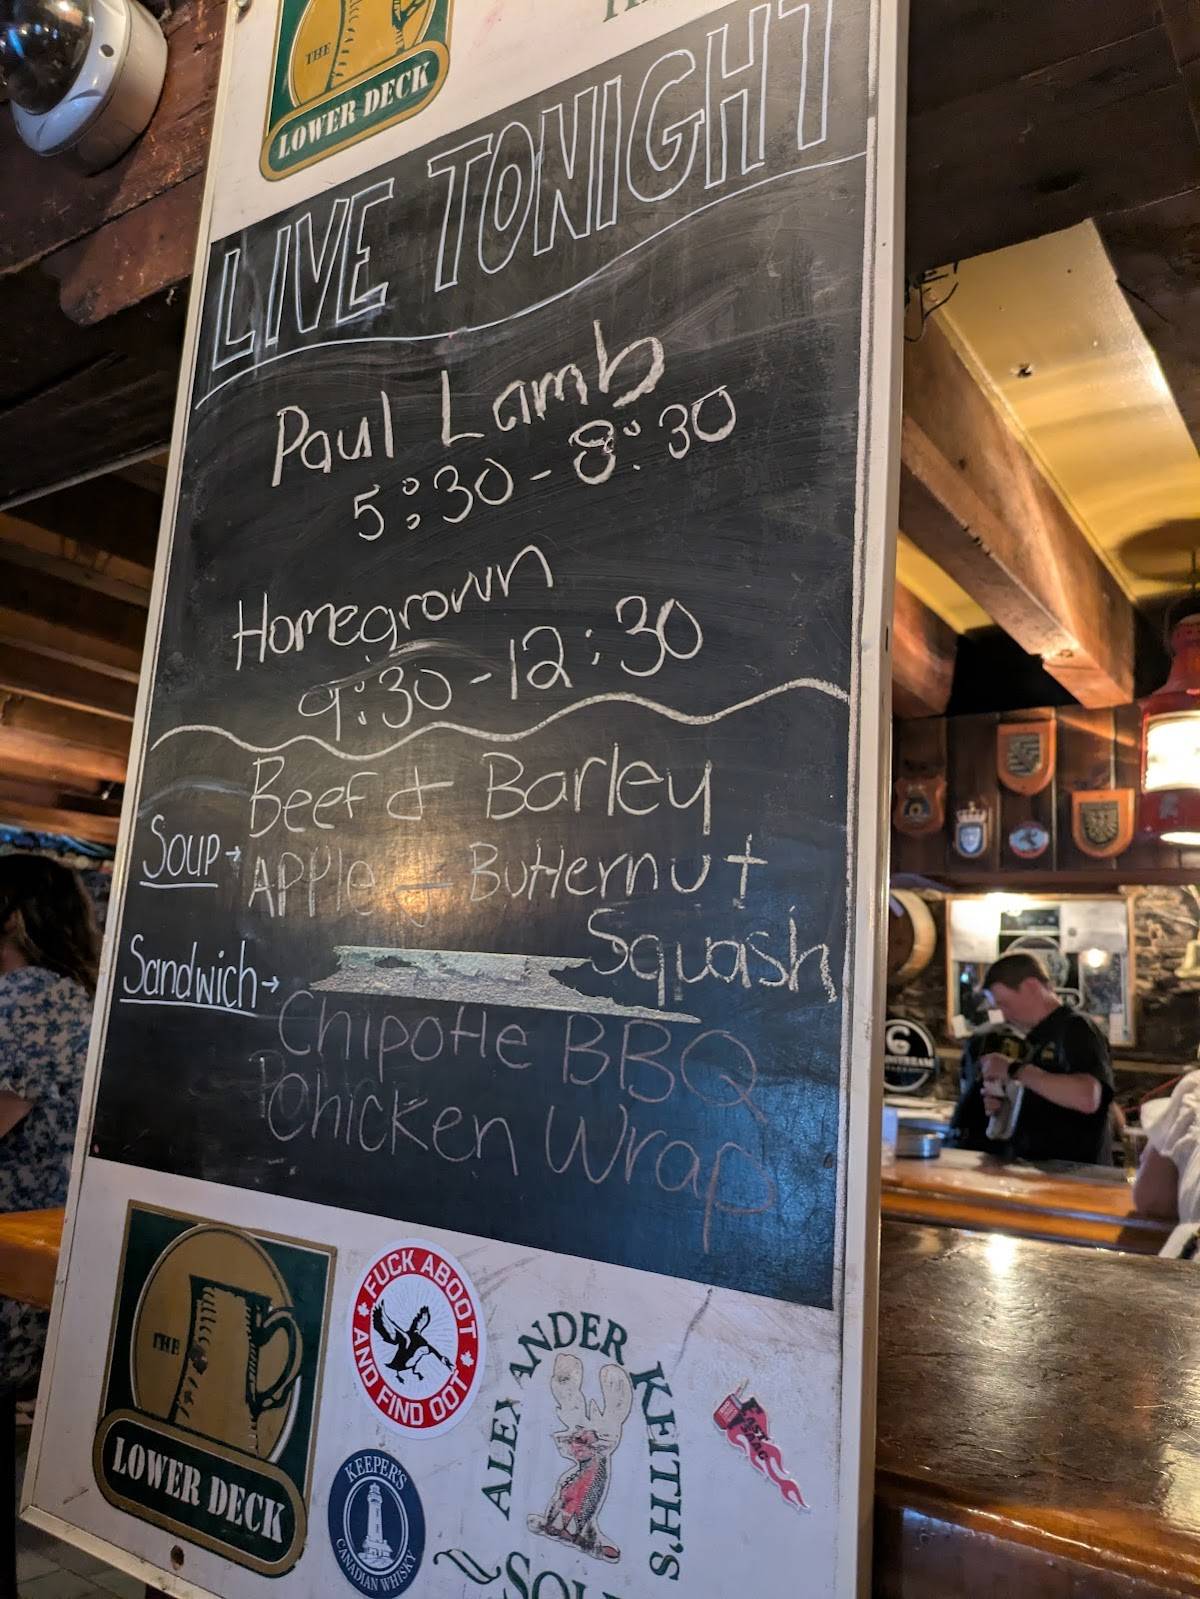 THE
LOWER DECK
LIVE TONIGHT
Paul Lamb
5:30-8:30
Homegrown
9:30-12:30
Soup→
Beef & Barley
APPle - Butternut
Squash
Sandwich→
Chipotle BBQ
Chicken Wrap
THE
LOWER DECK
FUCK ABOOT
AND FIND OOT
KEEPER'S
CANADIAN WHISKY
ALEXANDER KEITH'S
EAST